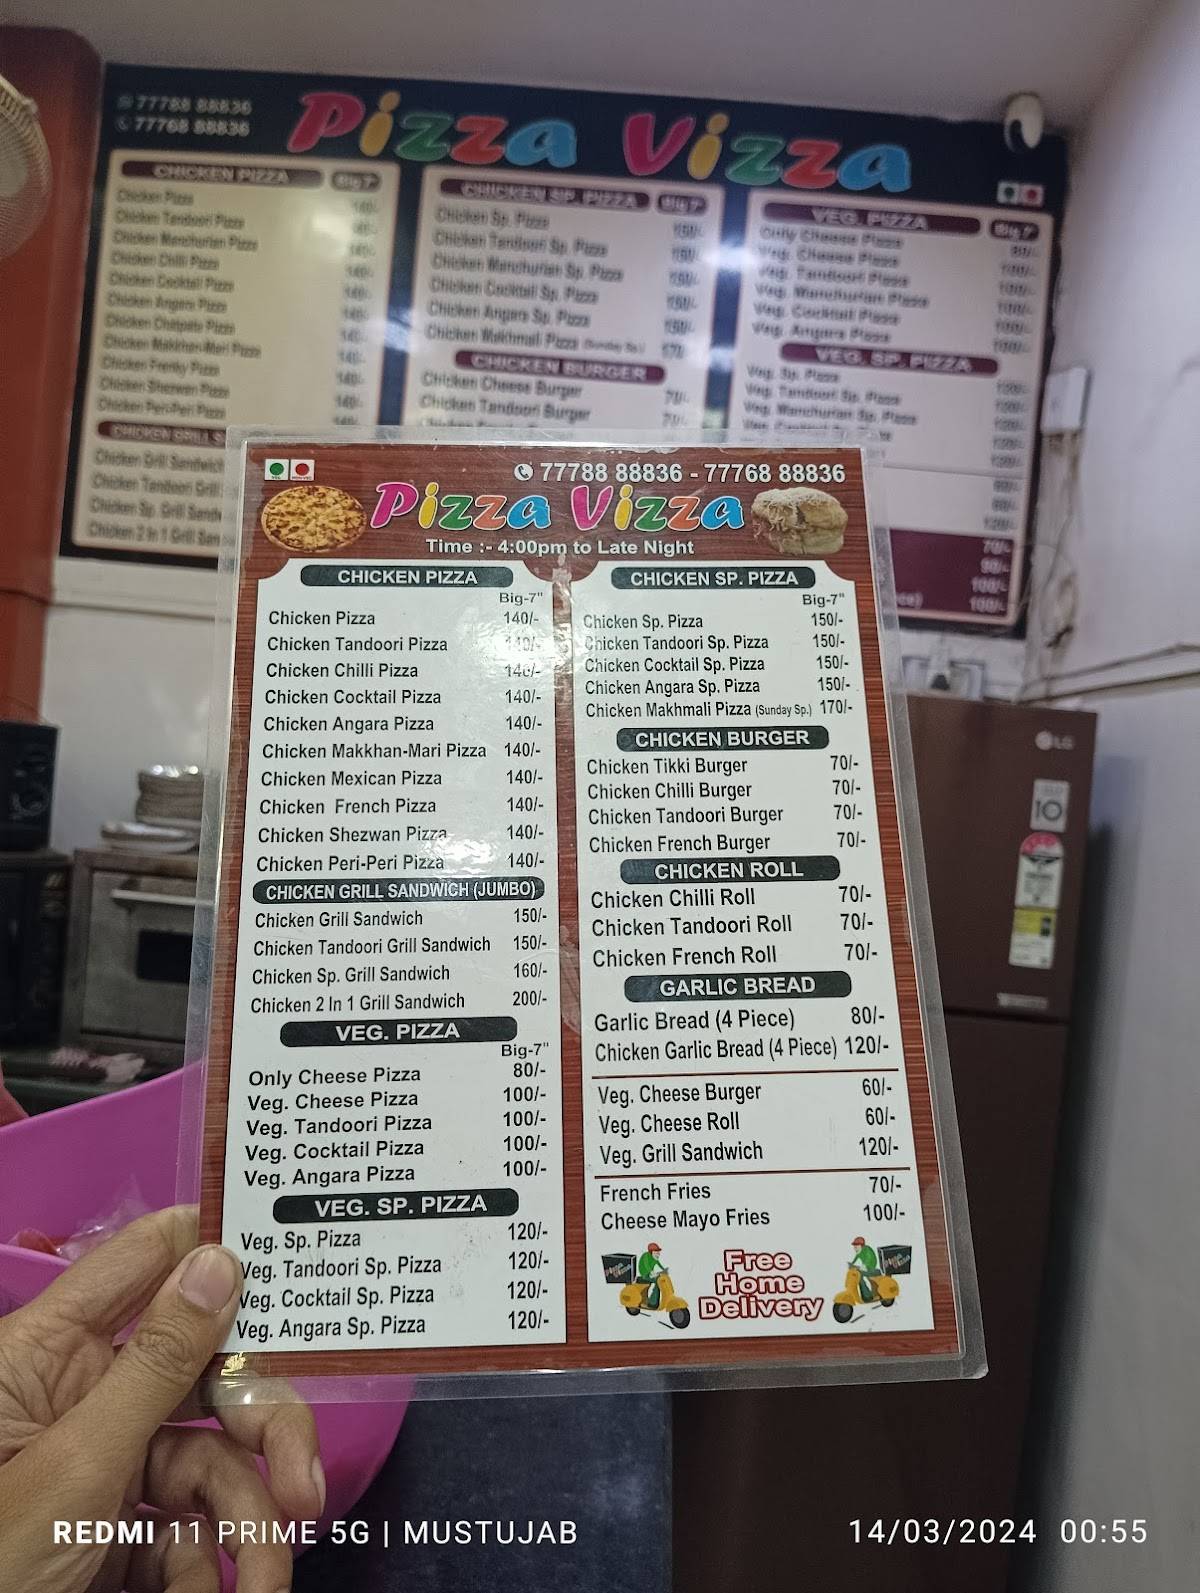 77788 88836
77768 88836
Pizza Vizza
CHICKEN PIZZA Big 7"
Chicken Pizza 140/-
Chicken Tandoori Pizza
Chicken Manchurian Pizza
Chicken Chilli Pizza
Chicken Cocktail Pizza
Chicken Angara Pizza
Chicken Chatpata Pizza
Chicken Makkhan-Mari Pizza
Chicken Frenky Pizza
Chicken Shezwan Pizza
Chicken Peri-Peri Pizza
Chicken Grill Sandwich
Chicken Tandoori Grill
Chicken Sp. Grill
Chicken 2 In 1 Grill
CHICKEN SP. PIZZA Big 7"
Chicken Sp. Pizza 150/-
Chicken Tandoori Sp. Pizza 150/-
Chicken Manchurian Sp. Pizza 150/-
Chicken Cocktail Sp. Pizza 150/-
Chicken Angara Sp. Pizza 150/-
Chicken Makhmali Pizza (Sunday Sp.) 170
CHICKEN BURGER
Chicken Cheese Burger 70/-
Chicken Tandoori Burger 70/-
VEG. PIZZA Big 7"
Only Cheese Pizza 80/-
Veg. Cheese Pizza 100/-
Veg. Tandoori Pizza 100/-
Veg. Manchurian Pizza 100/-
Veg. Cocktail Pizza 100/-
Veg. Angara Pizza 100/-
VEG. SP. PIZZA
Veg. Sp. Pizza 120/-
Veg. Tandoori Sp. Pizza 120/-
Veg. Manchurian Sp. Pizza 120/-
70/-
90/-
100/-
100/-
77788 88836 - 77768 88836
Pizza Vizza
Time :- 4:00pm to Late Night
CHICKEN PIZZA
Big-7"
Chicken Pizza 140/-
Chicken Tandoori Pizza 140/-
Chicken Chilli Pizza 140/-
Chicken Cocktail Pizza 140/-
Chicken Angara Pizza 140/-
Chicken Makkhan-Mari Pizza 140/-
Chicken Mexican Pizza 140/-
Chicken French Pizza 140/-
Chicken Shezwan Pizza 140/-
Chicken Peri-Peri Pizza 140/-
CHICKEN GRILL SANDWICH (JUMBO)
Chicken Grill Sandwich 150/-
Chicken Tandoori Grill Sandwich 150/-
Chicken Sp. Grill Sandwich 160/-
Chicken 2 In 1 Grill Sandwich 200/-
VEG. PIZZA
Big-7"
Only Cheese Pizza 80/-
Veg. Cheese Pizza 100/-
Veg. Tandoori Pizza 100/-
Veg. Cocktail Pizza 100/-
Veg. Angara Pizza 100/-
VEG. SP. PIZZA
Veg. Sp. Pizza 120/-
Veg. Tandoori Sp. Pizza 120/-
Veg. Cocktail Sp. Pizza 120/-
Veg. Angara Sp. Pizza 120/-
CHICKEN SP. PIZZA
Big-7"
Chicken Sp. Pizza 150/-
Chicken Tandoori Sp. Pizza 150/-
Chicken Cocktail Sp. Pizza 150/-
Chicken Angara Sp. Pizza 150/-
Chicken Makhmali Pizza (Sunday Sp.) 170/-
CHICKEN BURGER
Chicken Tikki Burger 70/-
Chicken Chilli Burger 70/-
Chicken Tandoori Burger 70/-
Chicken French Burger 70/-
CHICKEN ROLL
Chicken Chilli Roll 70/-
Chicken Tandoori Roll 70/-
Chicken French Roll 70/-
GARLIC BREAD
Garlic Bread (4 Piece) 80/-
Chicken Garlic Bread (4 Piece) 120/-
Veg. Cheese Burger 60/-
Veg. Cheese Roll 60/-
Veg. Grill Sandwich 120/-
French Fries 70/-
Cheese Mayo Fries 100/-
Free
Home
Delivery
LG
10
REDMI 11 PRIME 5G | MUSTUJAB
14/03/2024 00:55